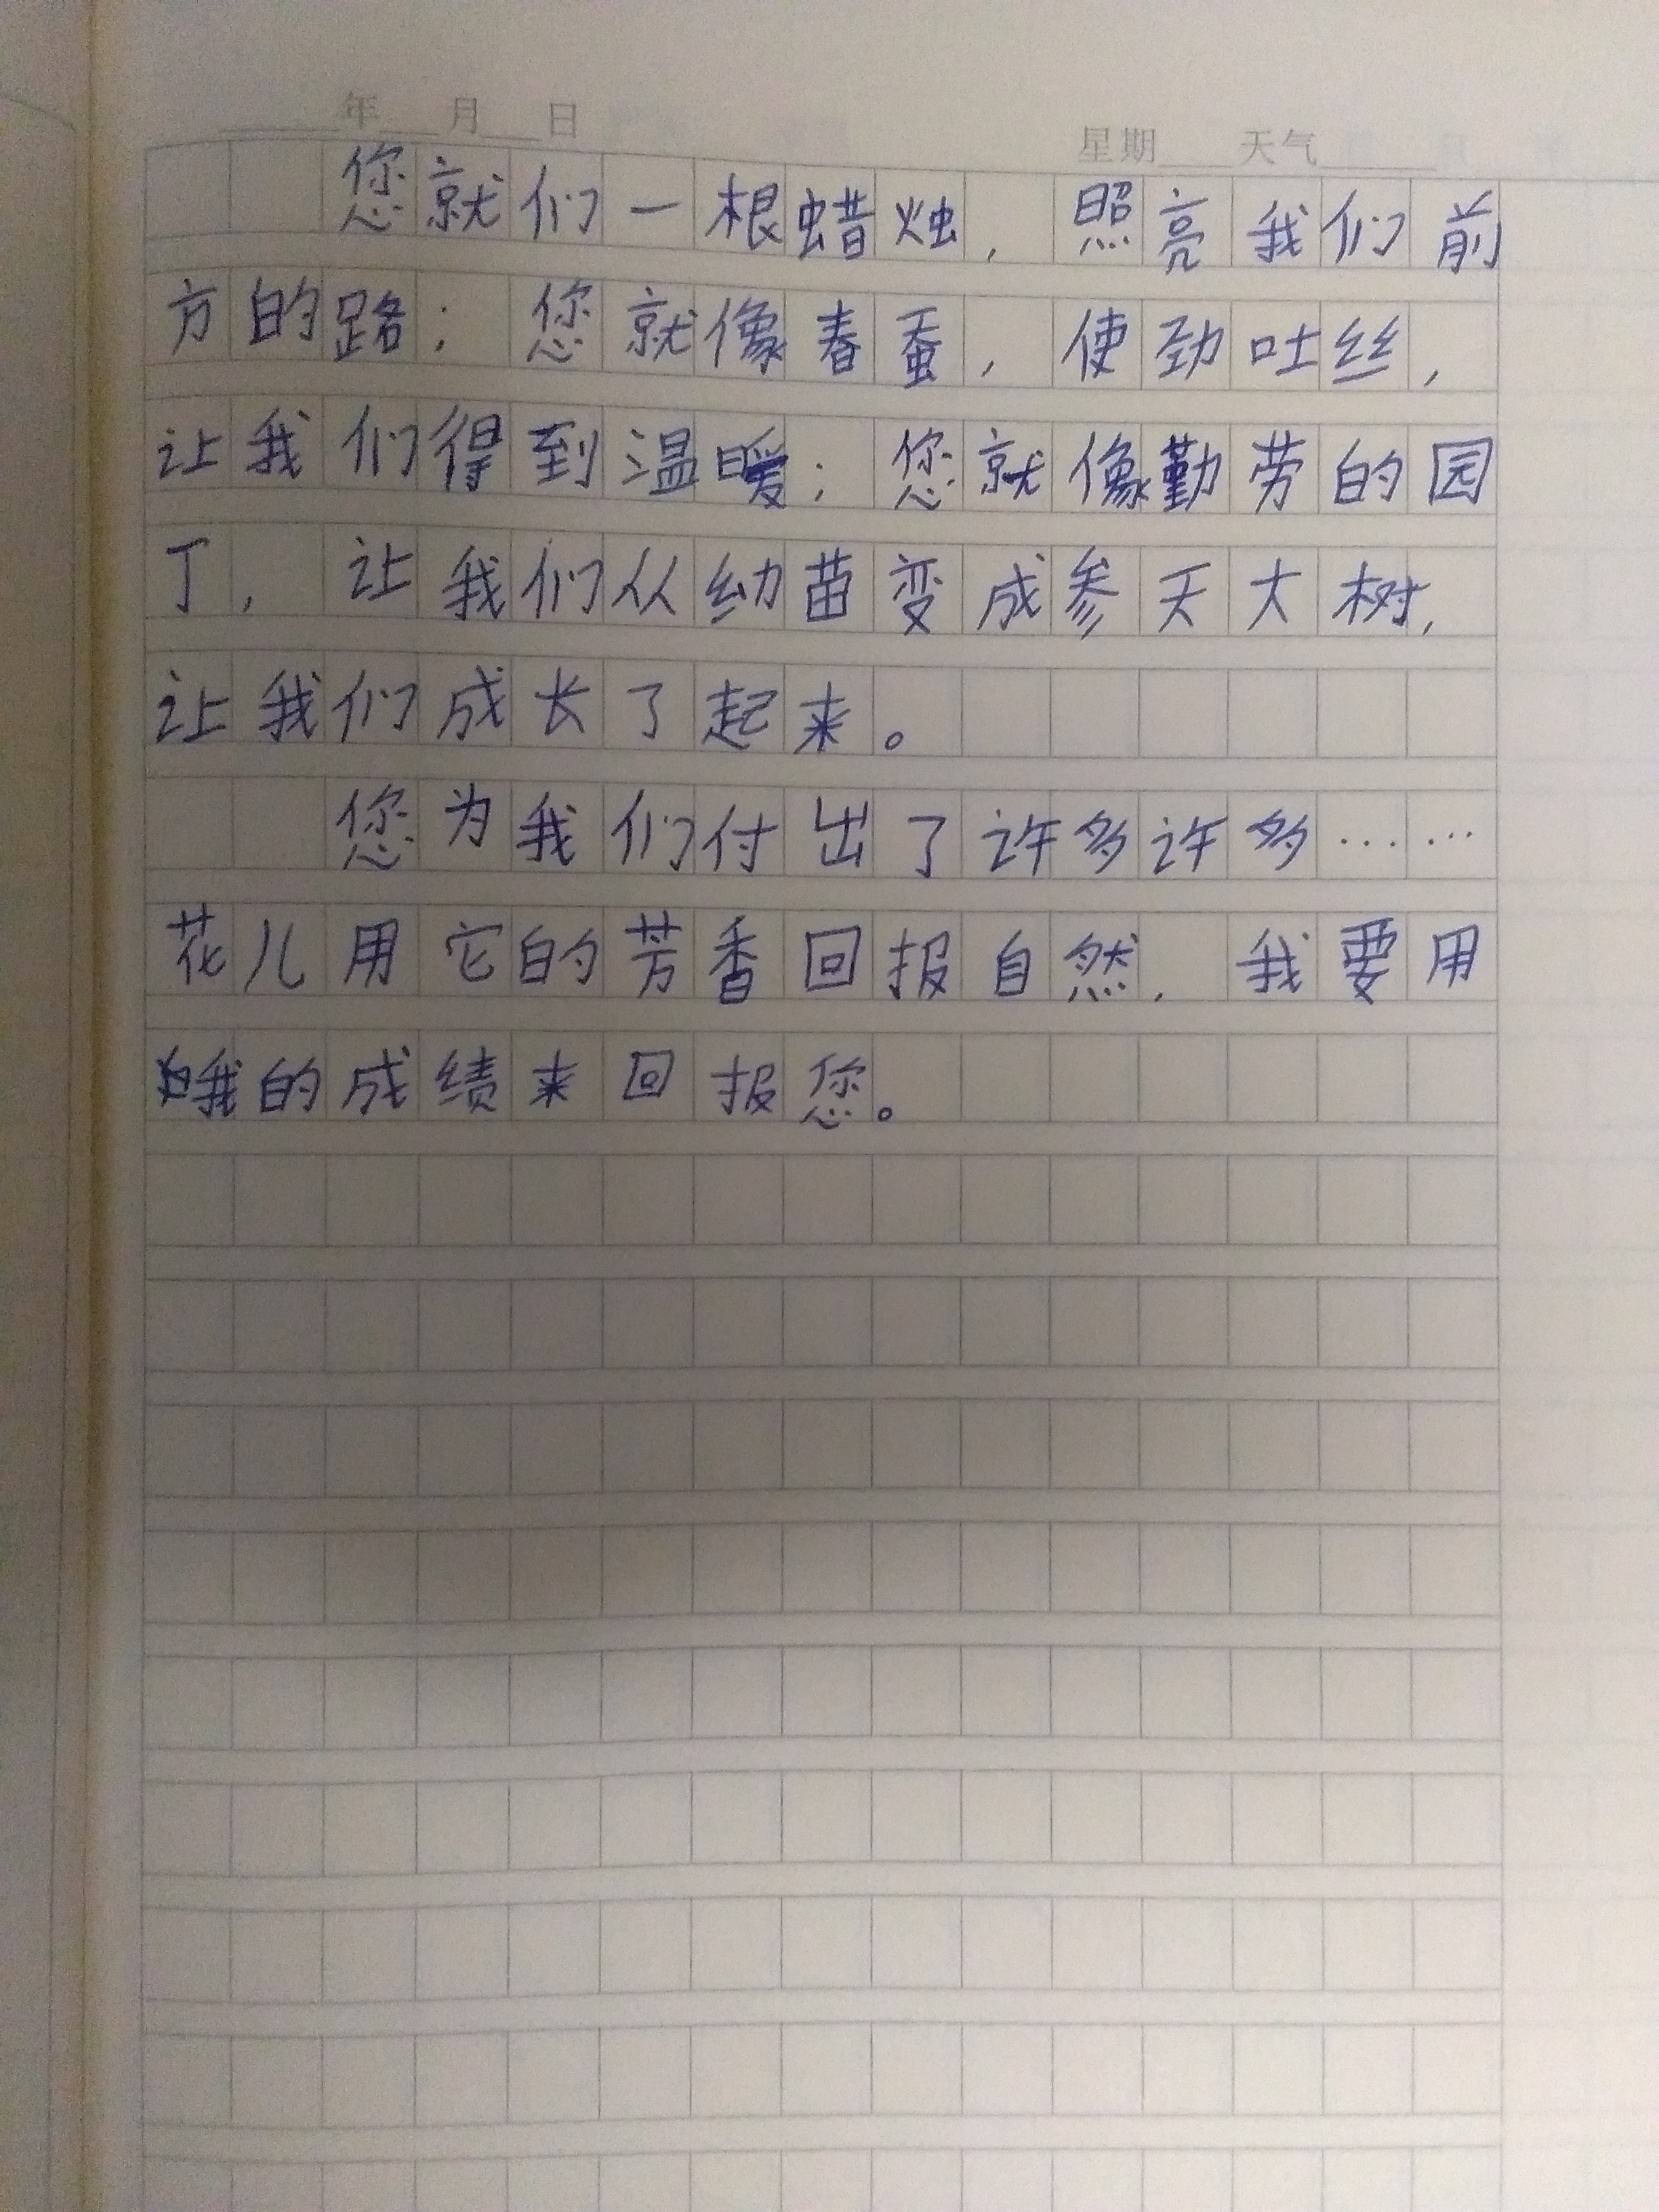 年 月 日 星期 天气
您就们一根蜡烛,照亮我们前
方的路;您就像春蚕,使劲吐丝,
让我们得到温暖;您就像勤劳的园
丁,让我们从幼苗变成参天大树,
让我们成长了起来。
您为我们付出了许多许多……
花儿用它的芳香回报自然,我要用
我的成绩来回报您。